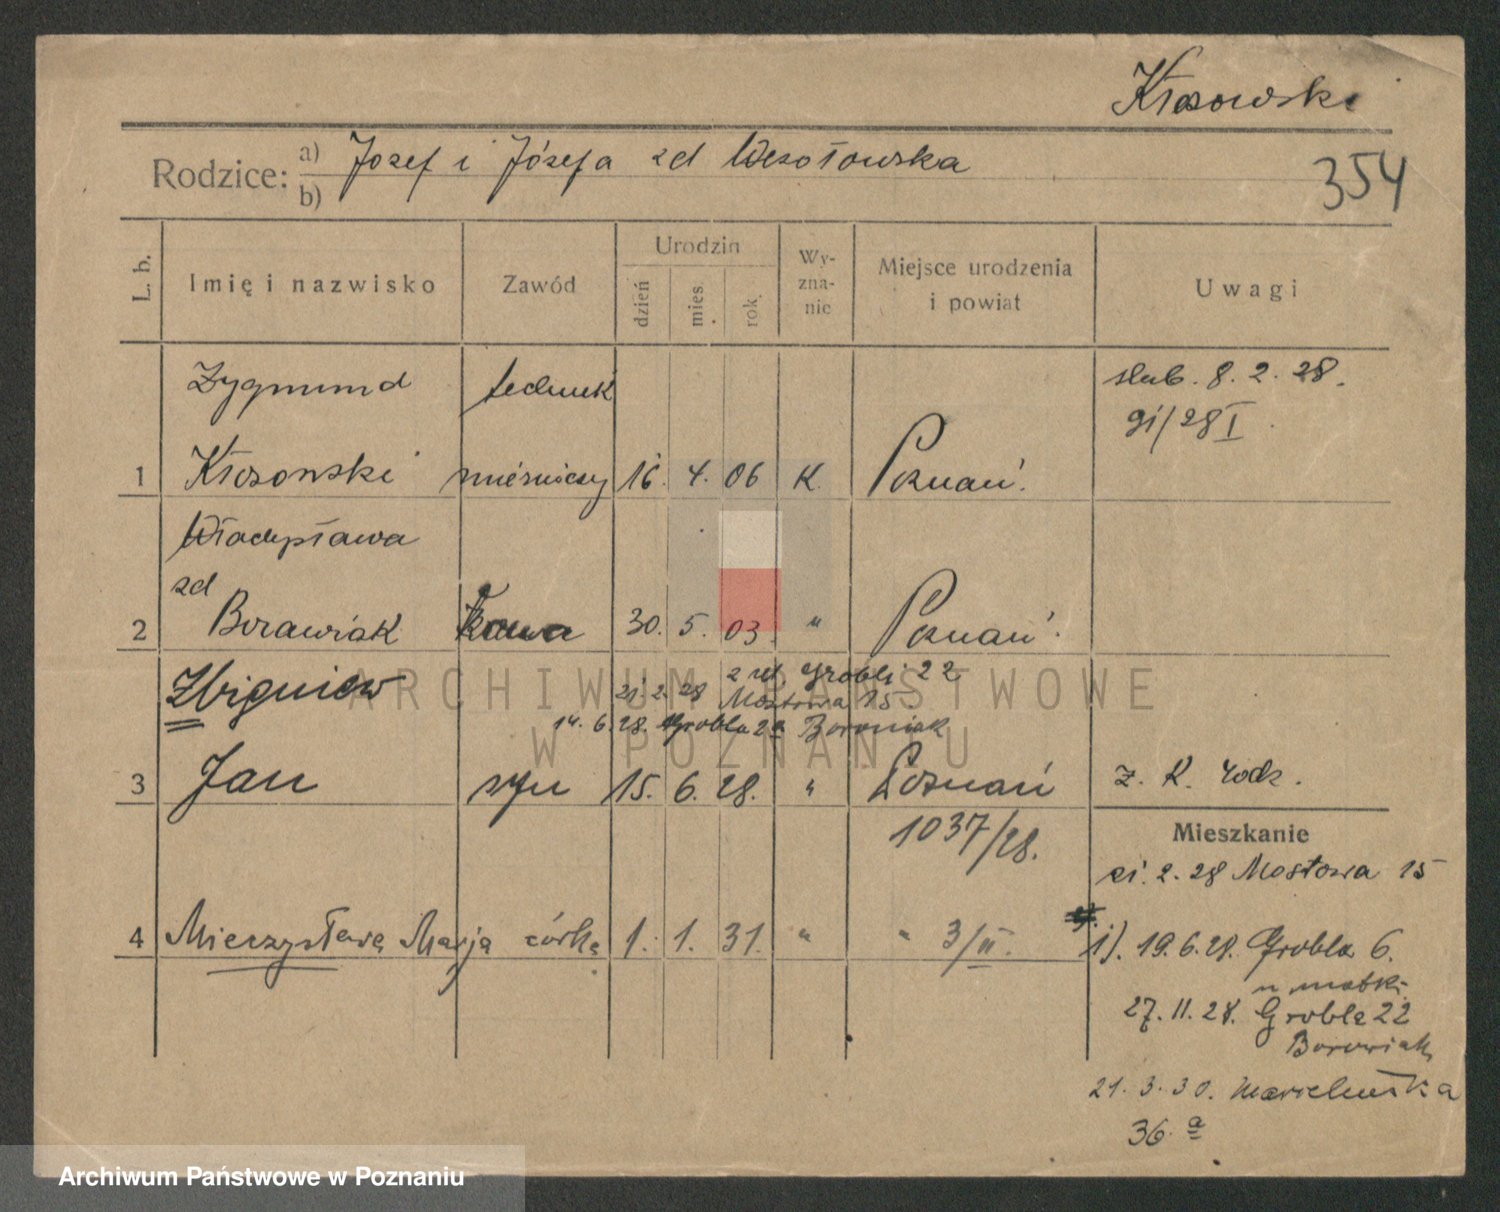 Kłosowski
Rodzice: a) Józef i Józefa zd Wesołowska
b)
354
L. b.
Imię i nazwisko
Zawód
Urodzin
dzień
mies.
rok
Wy-
zna-
nie
Miejsce urodzenia
i powiat
Uwagi
Zygmund technik ślub. 8. 2. 28.
28 I
1 Kłosowski mierniczy 16. 4. 06 K. Poznań.
Władysława
zd
2 Borawiak 30. 5. 03. " Poznań.
Zbigniew z ul. Grobli 22
21. 2. 28 Mostowa 15.
14. 6. 28. Grobla 22 Borowiak
3 Jan syn 15. 6. 28. " Poznań z. K. rodz.
1037/28.
Mieszkanie
21. 2. 28 Mostowa 15
4 Mieczysława Marja córka 1. 1. 31. " " 3/II.
19. 6. 28. Grobla 6.
u matki
27. 11. 28. Grobla 22
Borowiak
21. 3. 30.
36. a
ARCHIWUM PAŃSTWOWE
W POZNANIU
Archiwum Państwowe w Poznaniu